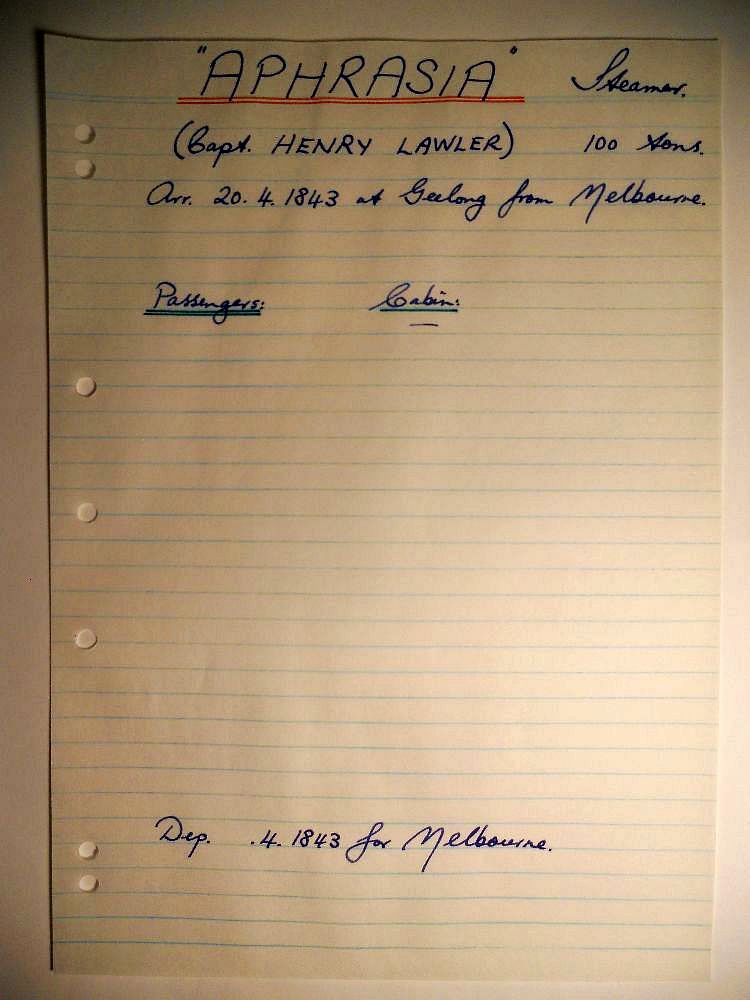 "APHRASIA" Steamer.
(Capt. HENRY LAWLER) 100 tons.
Arr. 20.4.1843 at Geelong from Melbourne.
Passengers: Cabin:
—
Dep. .4.1843 for Melbourne.